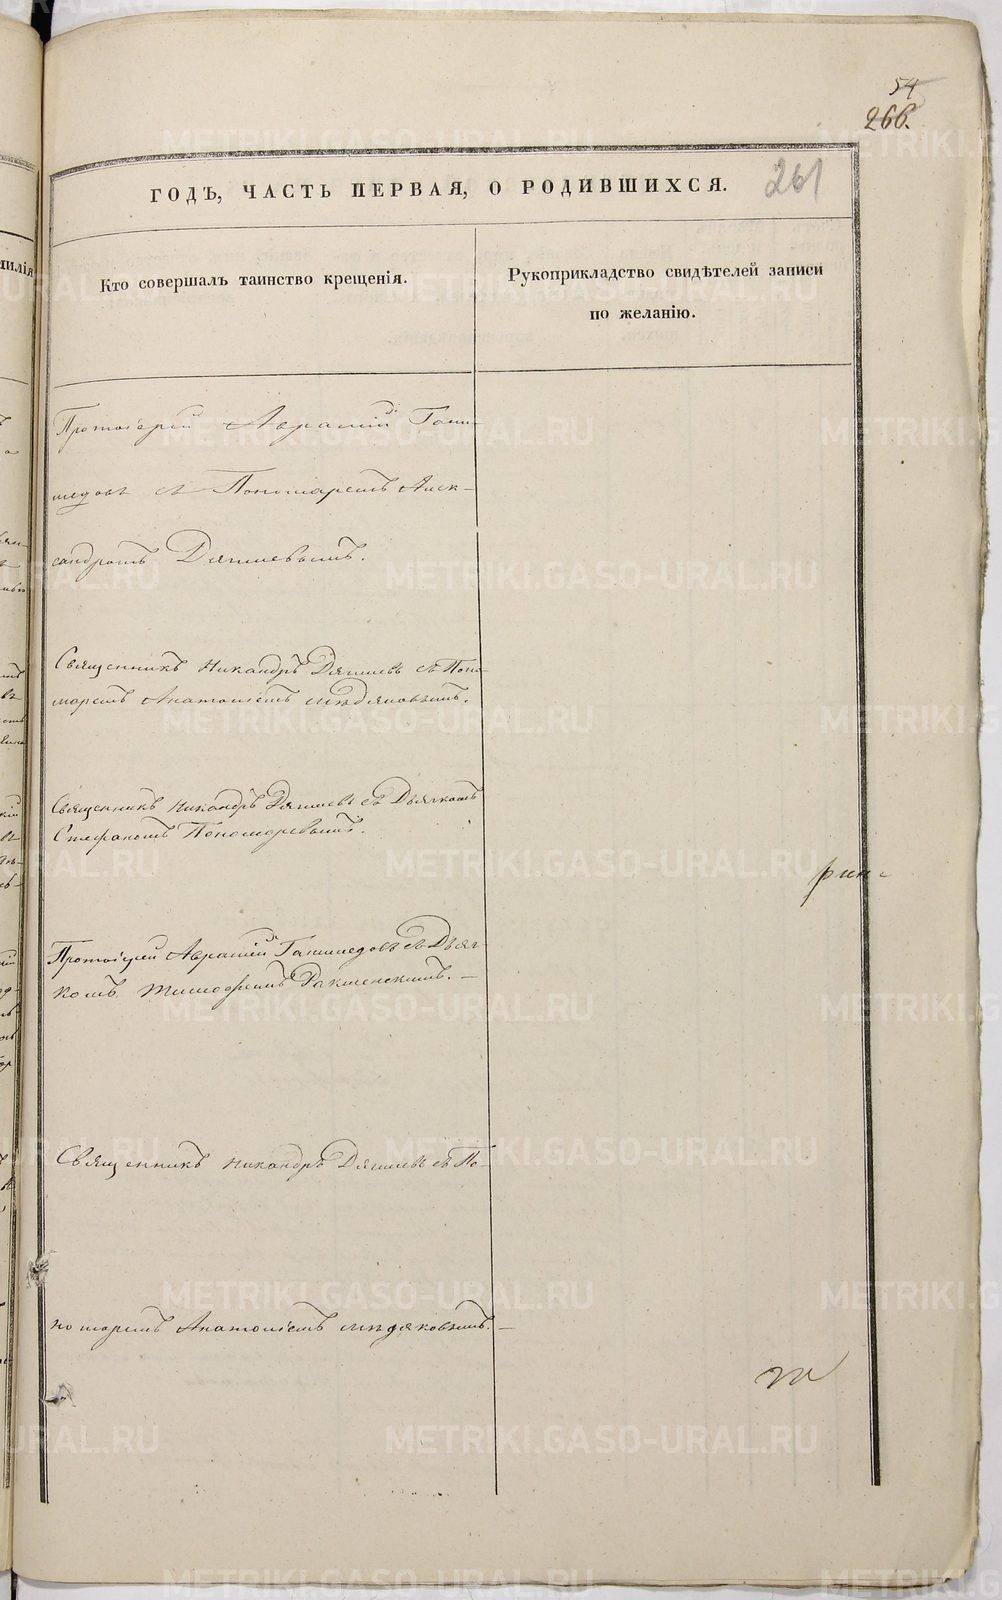 54
266.
261
ГОДЪ, ЧАСТЬ ПЕРВАЯ, О РОДИВШИХСЯ.
Кто совершалъ таинство крещенія.
Рукоприкладство свидѣтелей записи
по желанію.
Протоіерей Авраамій
съ Пономаремъ Алек-
сандромъ Дягилевымъ.
Священникъ Никандръ Дягилевъ съ Поно-
маремъ Анатоліемъ
Священникъ Никандръ Дягилевъ съ Дьячкомъ
Стефаномъ Пономаревымъ.
Протоіерей Авраамій съ Дьяч-
комъ Тимофеемъ
Священникъ Никандръ Дягилевъ съ По-
номаремъ Анатоліемъ
METRIKI.GASO-URAL.RU